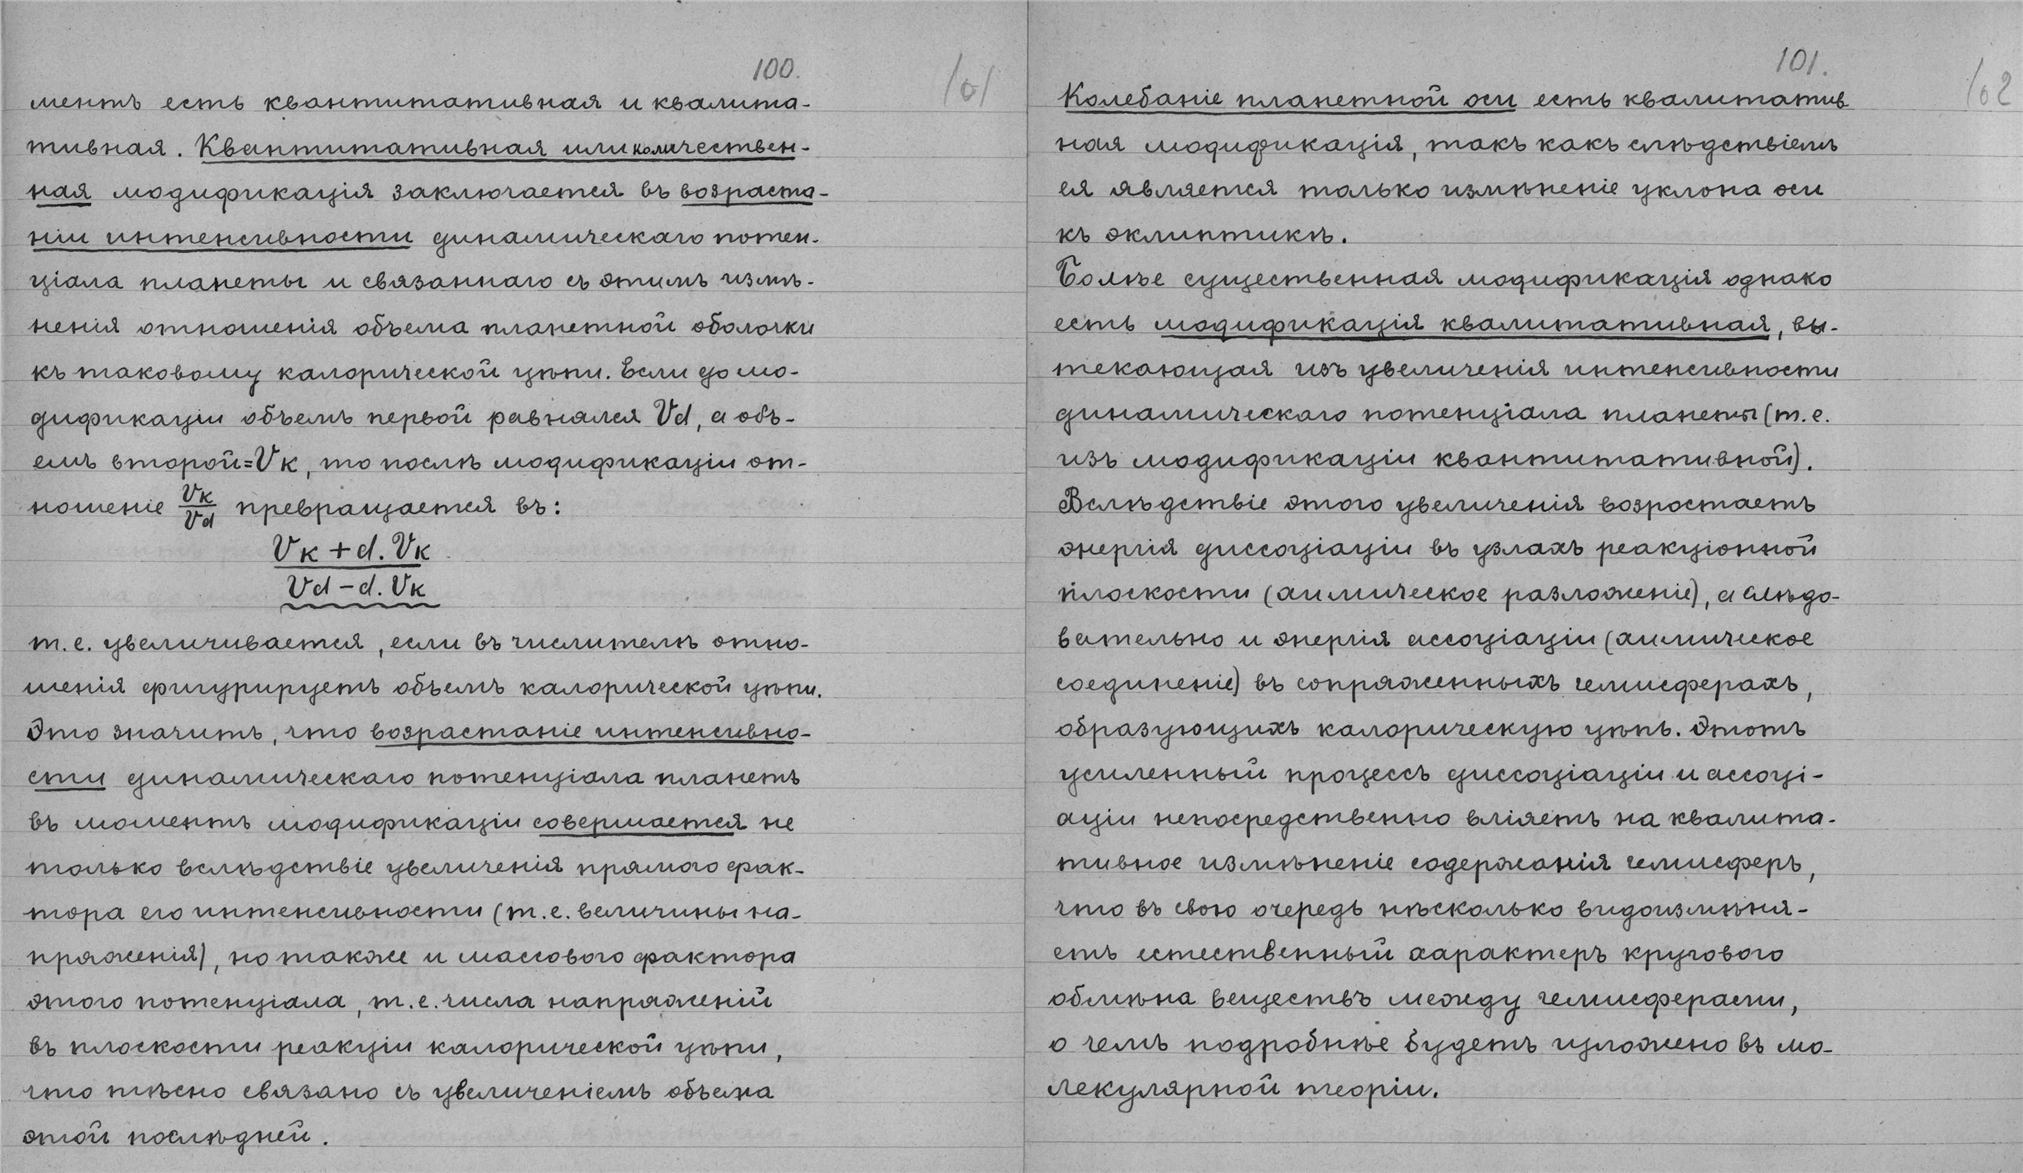 100.
101
ментъ есть квантитативная и квалита-
тивная. Квантитативная или количествен-
ная модификація заключается въ возраста-
ніи интенсивности динамическаго потен-
ціала планеты и связаннаго съ этимъ измѣ-
ненія отношенія объема планетной оболочки
къ таковому калорической цѣпи. Если до мо-
дификаціи объемъ первой равнялся Vd, а объ-
емъ второй=Vк, то послѣ модификаціи от-
ношеніе Vк/Vd превращается въ:
Vк + d. Vк
Vd – d. Vк
т.е. увеличивается, если въ числителѣ отно-
шенія фигурируетъ объемъ калорической цѣпи.
Это значитъ, что возрастаніе интенсивно-
сти динамическаго потенціала планетъ
въ моментъ модификаціи совершается не
только вслѣдствіе увеличенія прямого фак-
тора его интенсивности (т.е. величины на-
пряженія), но также и массового фактора
этого потенціала, т.е. числа напряженій
въ плоскости реакціи калорической цѣпи,
что тѣсно связано съ увеличеніемъ объема
этой послѣдней.
101.
102
Колебаніе планетной оси есть квалитатив
ная модификація, такъ какъ слѣдствіемъ
ея является только измѣненіе уклона оси
къ эклиптикѣ.
Болѣе существенная модификація однако
есть модификація квалитативная, вы-
текающая изъ увеличенія интенсивности
динамическаго потенціала планеты (т.е.
изъ модификаціи квантитативной).
Вслѣдствіе этого увеличенія возростаетъ
энергія диссоціаціи въ узлахъ реакціонной
плоскости (химическое разложеніе), а слѣдо-
вательно и энергія ассоціаціи (химическое
соединеніе) въ сопряженныхъ гемисферахъ,
образующихъ калорическую цѣпь. Этотъ
усиленный процессъ диссоціаціи и ассоці-
аціи непосредственно вліяетъ на квалита-
тивное измѣненіе содержанія гемисферъ,
что въ свою очередь нѣсколько видоизмѣня-
етъ естественный характеръ кругового
обмѣна веществъ между гемисферами,
о чемъ подробнѣе будетъ изложено въ мо-
лекулярной теоріи.